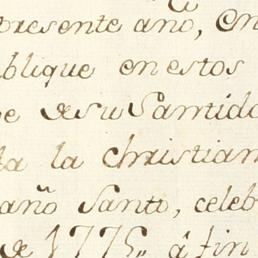 presente año, en
blique en estos
e de su Santida
ta la christian
año Santo, celeb
de 1775,, á fin